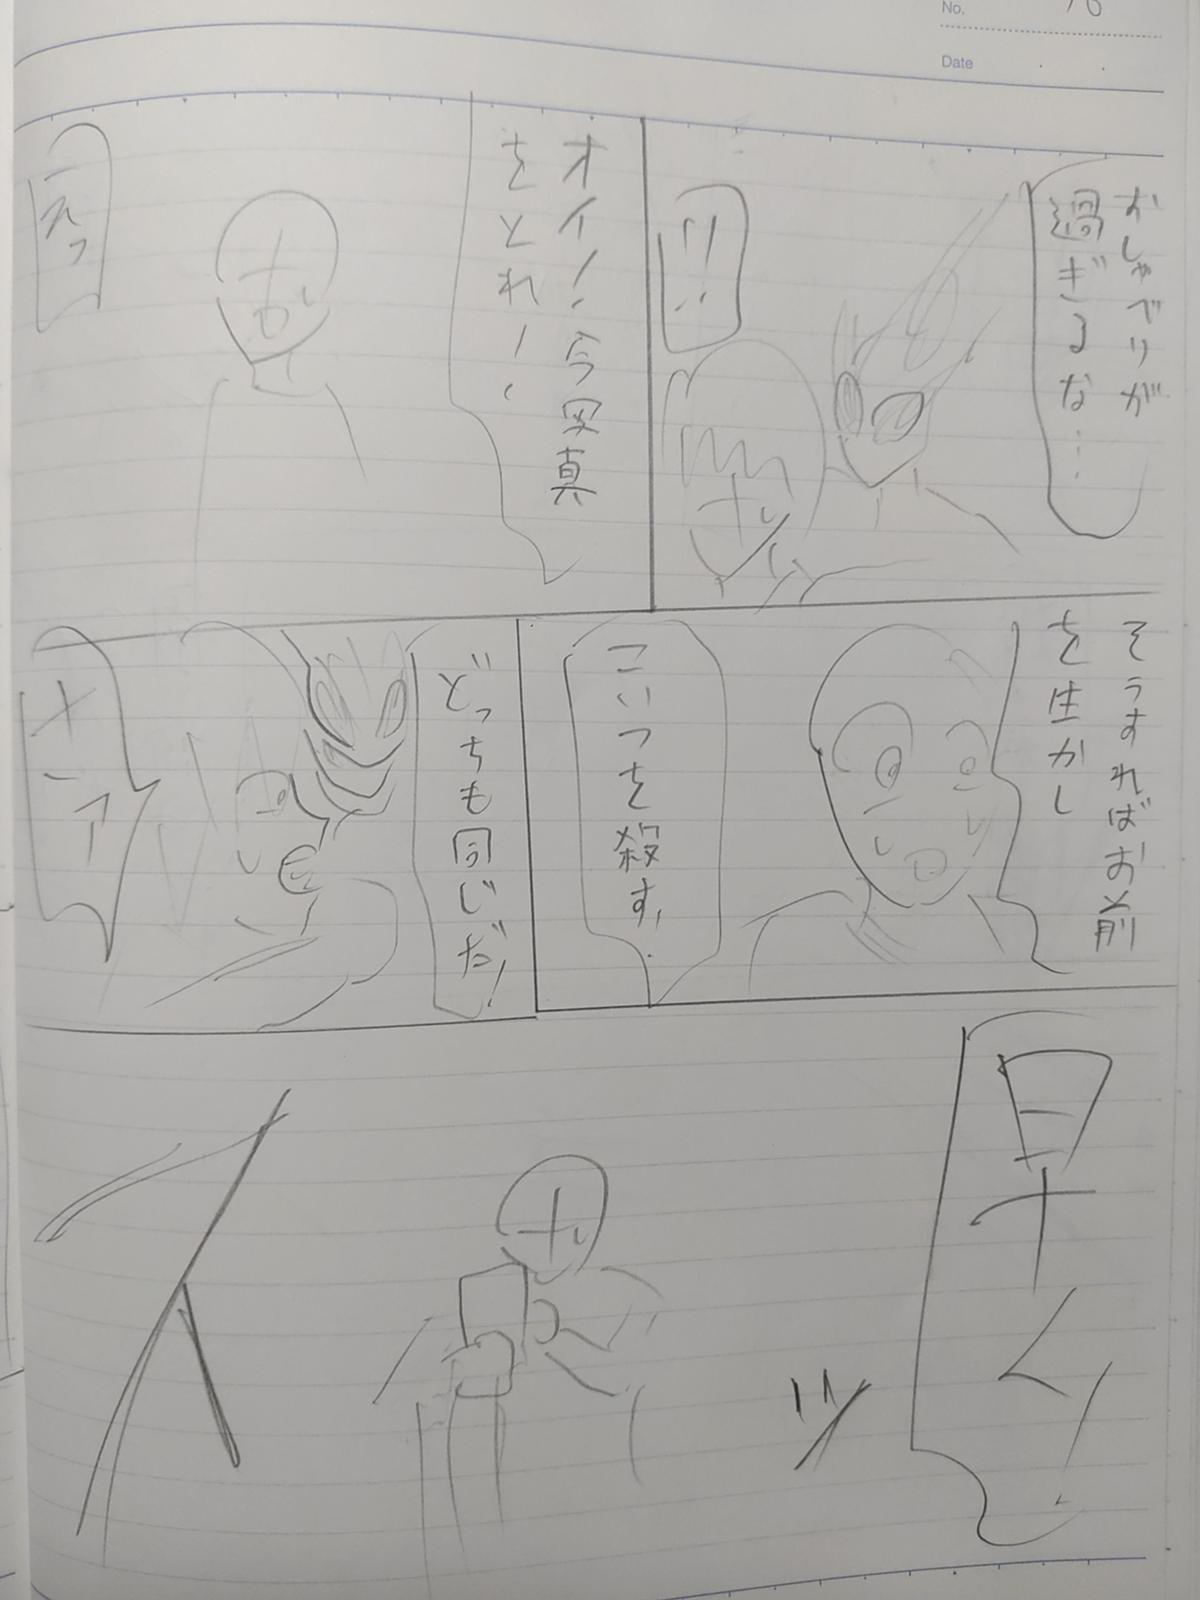 No. 76
Date
おしゃべりが
過ぎるな…
!!
オイ!今写真
をとれ!
えっ
そうすればお前
を生かし
こいつを殺す。
どっちも同じだ!
早く!